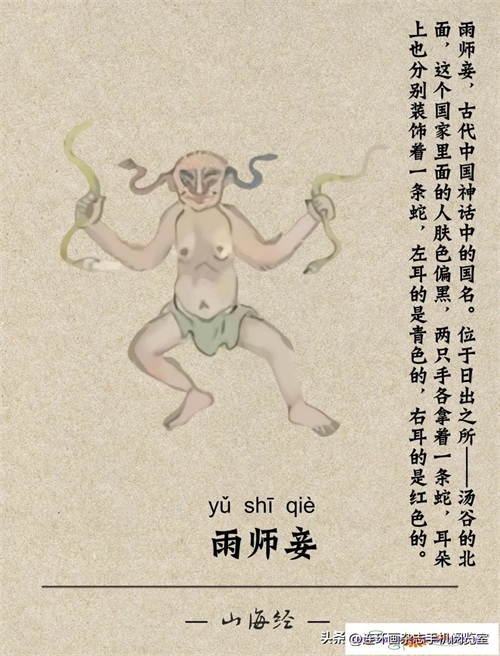 雨师妾，古代中国神话中的国名。位于日出之所——汤谷的北
面，这个国家里面的人肤色偏黑，两只手各拿着一条蛇，耳朵
上也分别装饰着一条蛇，左耳的是青色的，右耳的是红色的。
yǔ shī qiè
雨师妾
— 山海经 —
头条 @连环画杂志手机阅览室